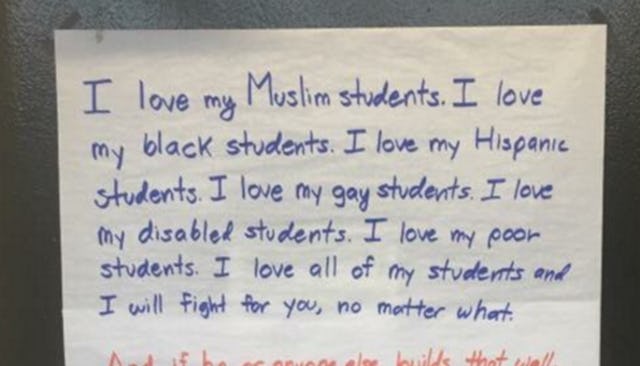 I love my Muslim students. I love
my black students. I love my Hispanic
students. I love my gay students. I love
my disabled students. I love my poor
students. I love all of my students and
I will fight for you, no matter what.
And if he or anyone else builds that wall,